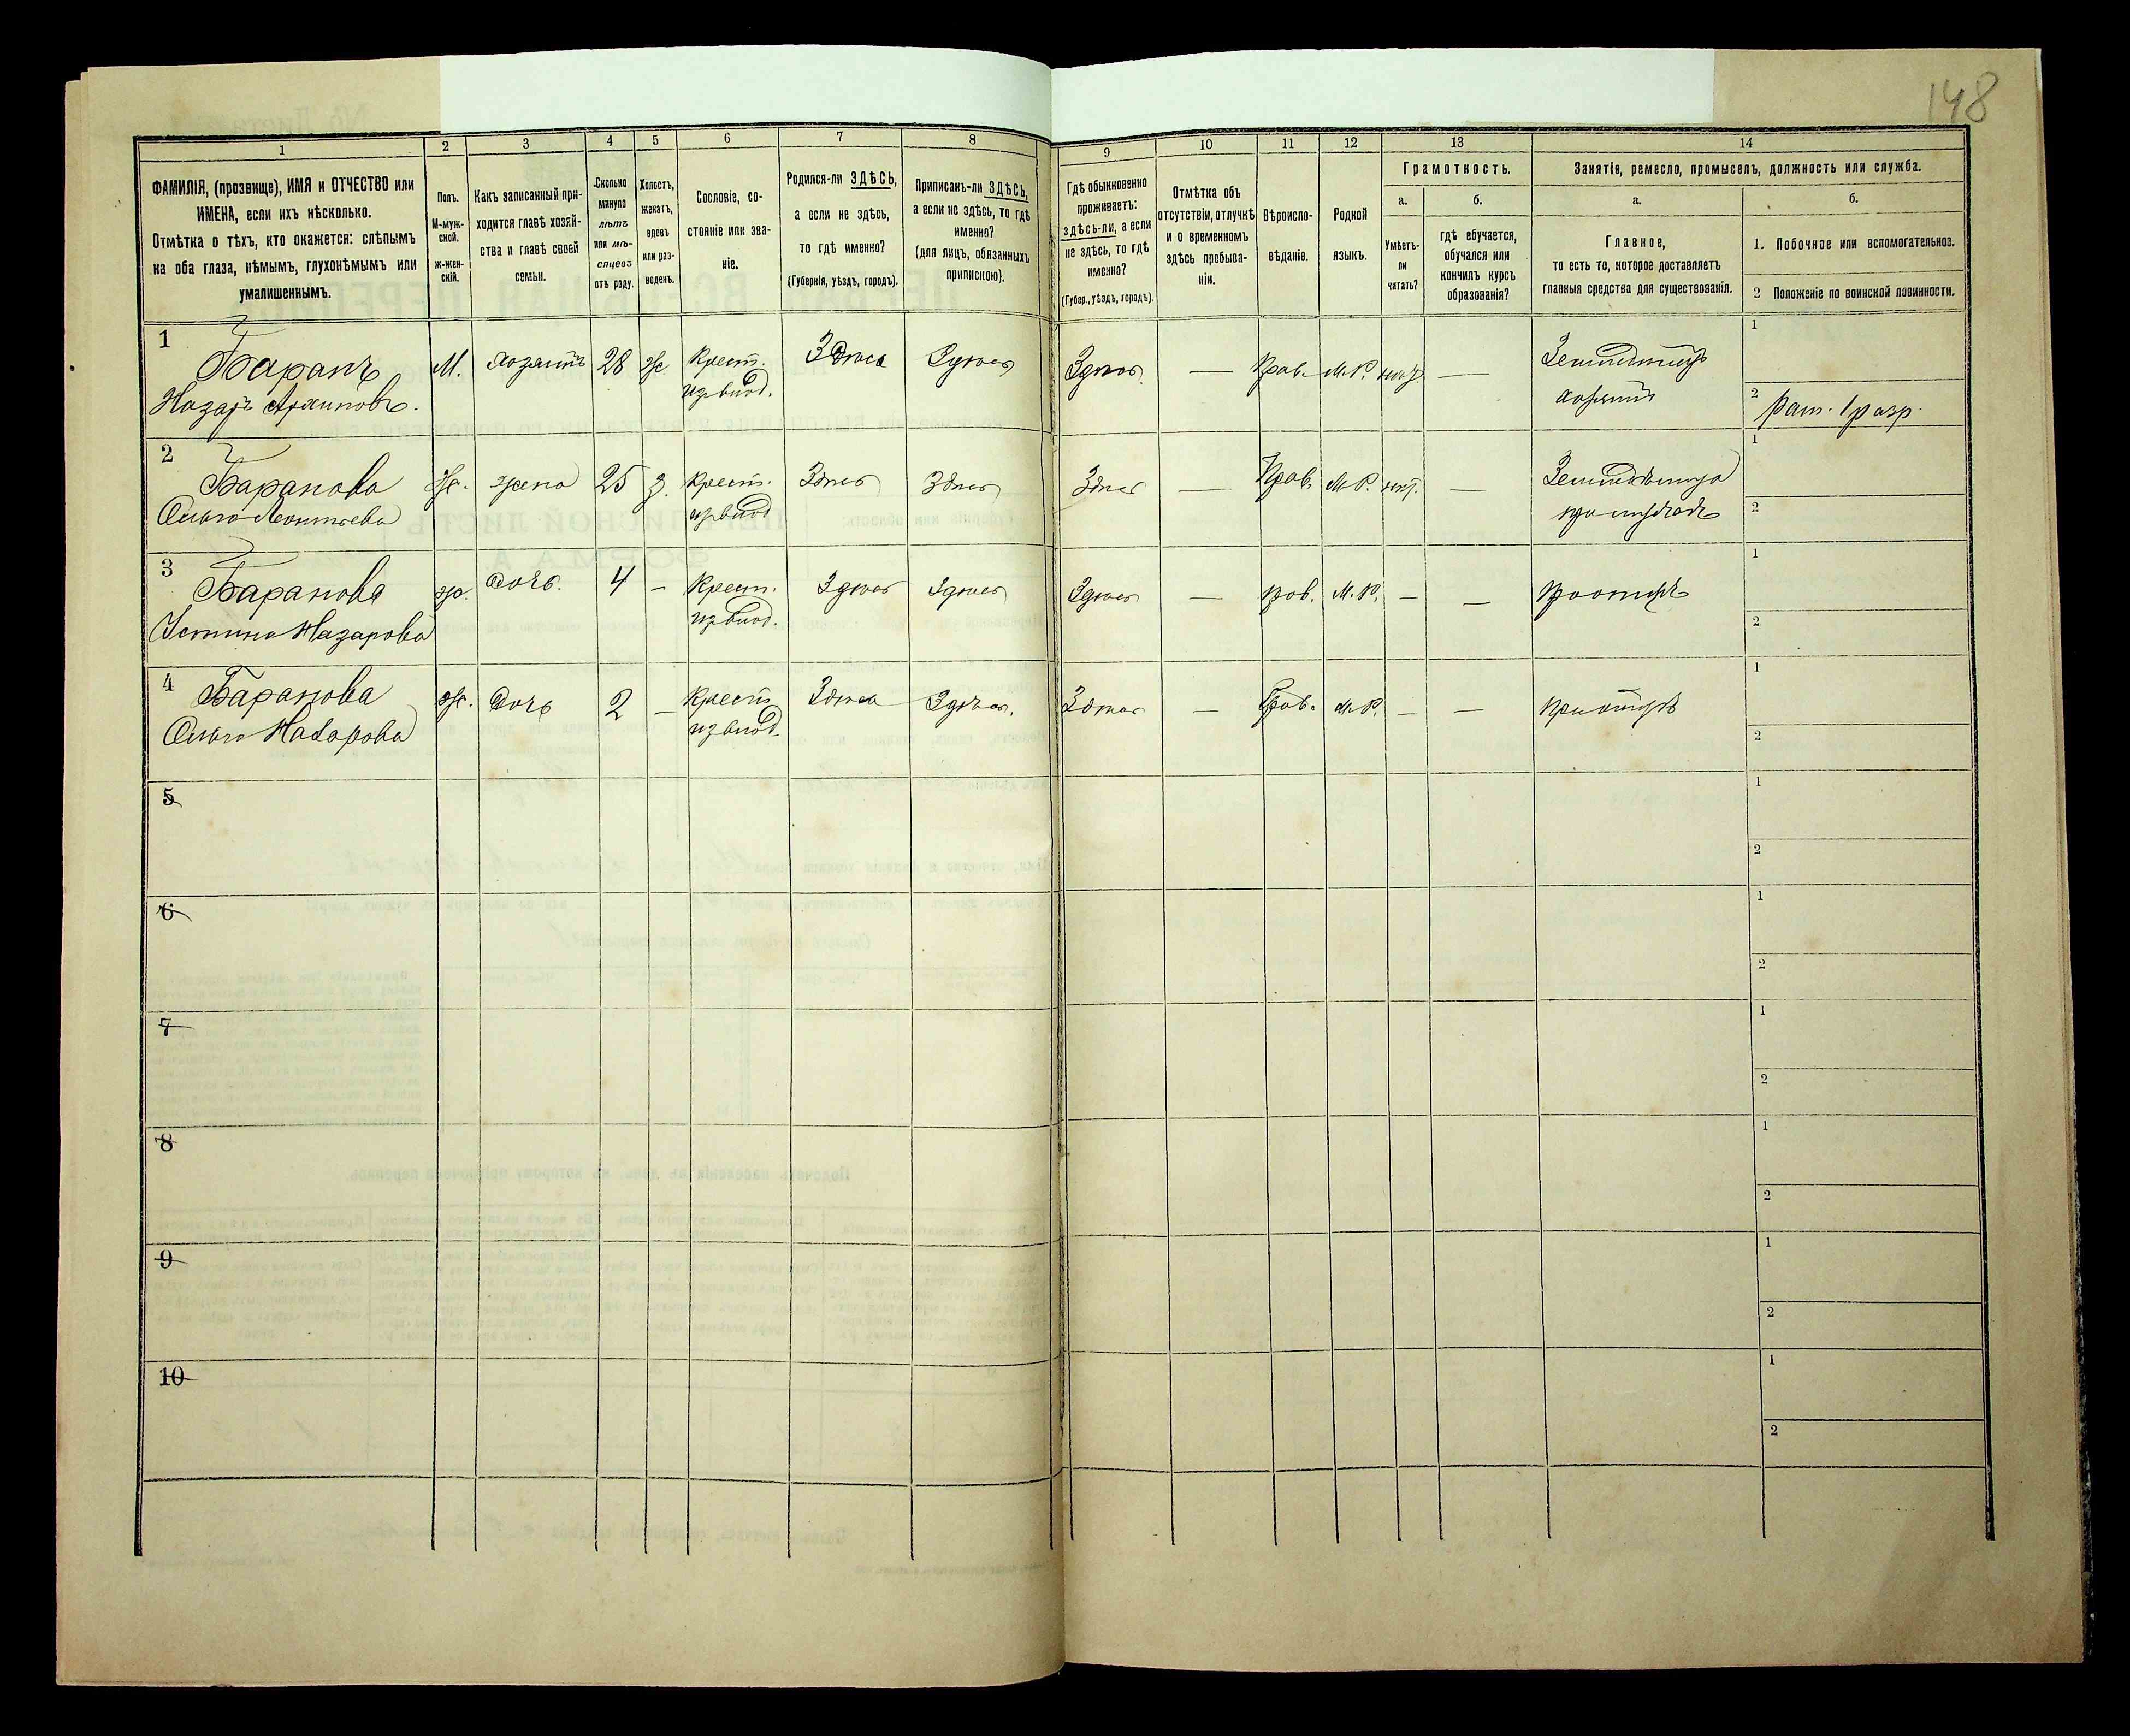 148
1
2
3
4
5
6
7
8
9
10
11
12
13
14
ФАМИЛІЯ, (прозвище), ИМЯ и ОТЧЕСТВО или
ИМЕНА, если ихъ нѣсколько.
Отмѣтка о тѣхъ, кто окажется: слѣпымъ
на оба глаза, нѣмымъ, глухонѣмымъ или
умалишеннымъ.
Полъ.
М-муж-
ской.
Ж-жен-
скій.
Какъ записанный при-
ходится главѣ хозяй-
ства и главѣ своей
семьи.
Сколько
минуло
лѣтъ
или мѣ-
сяцевъ
отъ роду.
Холостъ,
женатъ,
вдовъ
или раз-
веденъ.
Сословіе, со-
стояніе или зва-
ніе.
Родился-ли ЗДѢСЬ,
а если не здѣсь,
то гдѣ именно?
(Губернія, уѣздъ, городъ).
Приписанъ-ли ЗДѢСЬ,
а если не здѣсь, то гдѣ
именно?
(для лицъ, обязанныхъ
припискою).
Гдѣ обыкновенно
проживаетъ:
здѣсь-ли, а если
не здѣсь, то гдѣ
именно?
(Губер., уѣздъ, городъ).
Отмѣтка объ
отсутствіи, отлучкѣ
и о временномъ
здѣсь пребыва-
ніи.
Вѣроиспо-
вѣданіе.
Родной
языкъ.
Грамотность.
а.
Умѣетъ-
ли
читать?
б.
гдѣ обучается,
обучался или
кончилъ курсъ
образованія?
Занятіе, ремесло, промыселъ, должность или служба.
а.
Главное,
то есть то, которое доставляетъ
главныя средства для существованія.
б.
1. Побочное или вспомогательное.
2 Положеніе по воинской повинности.
1
Баранъ
Назаръ Архиповъ.
М.
хозяинъ
28
Ж
Крест.
из влад.
Здѣсь
Здѣсь
Здѣсь
—
Прав.
М.Р.
—
хозяинъ
1
2
Рат. 1 разр.
2
Баранова
Ольга Леонтьева
Ж.
жена
25
З.
Крест.
из влад
Здѣсь
Здѣсь
Здѣсь
—
Прав.
М.Р.
—
1
2
3
Баранова
Устина Назарова
ж.
дочь
4
—
Крест.
из влад.
Здѣсь
Здѣсь
Здѣсь
—
прав.
М.Р.
—
—
при отцѣ
1
2
4
Баранова
Ольга Назарова
ж.
дочь
2
—
Крест
из влад.
Здѣсь
Здѣсь.
Здѣсь
—
Прав.
М.Р.
—
—
при отцѣ
1
2
5
1
2
6
1
2
7
1
2
8
1
2
9
1
2
10
1
2